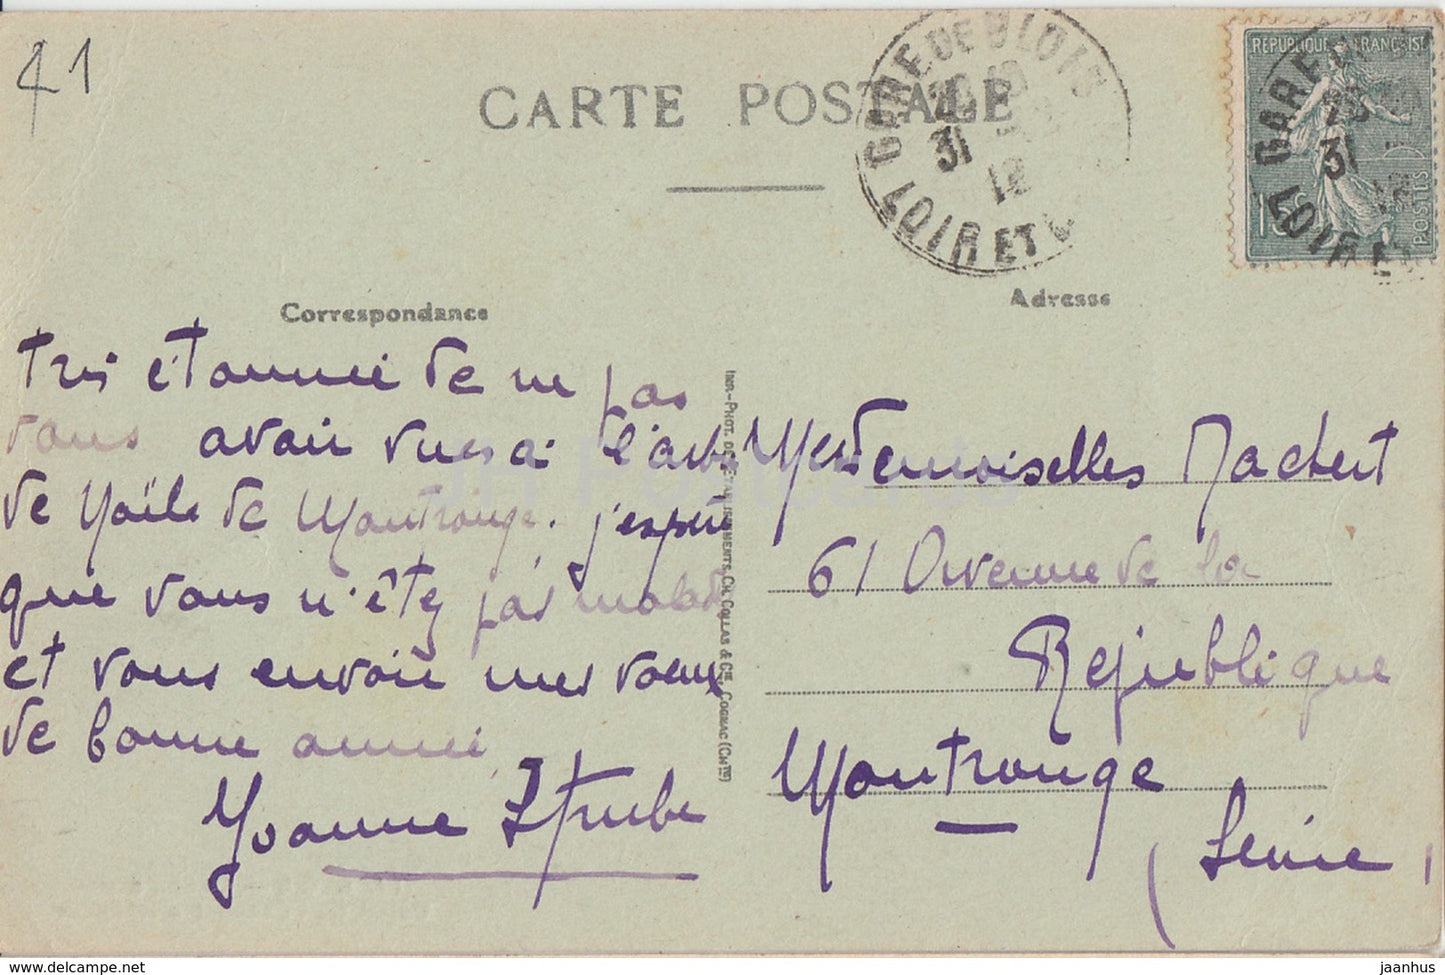 41
CARTE POSTALE
GARE DE BLOIS
31 12
LOIR ET
REPUBLIQUE FRANÇAISE
15c
POSTES
GARE
31 12
LOIR ET
Correspondance
Adresse
très étonnée de ne pas
vous avoir vues à l'arbre
de Noële de Montrouge. j'espère
que vous n'ête pas malade
et vous envoie mes voeux
de bonne année
Yvonne
IMP.-PHOT. DES ETABLISSEMENTS CH. COLLAS & CIE, COGNAC (CHTE)
Mesdemoiselles Machert
61 Avenue de la
République
Montrouge
(Seine)
JH Postcards
jaanhus-cards.delcampe.net
jaanhus